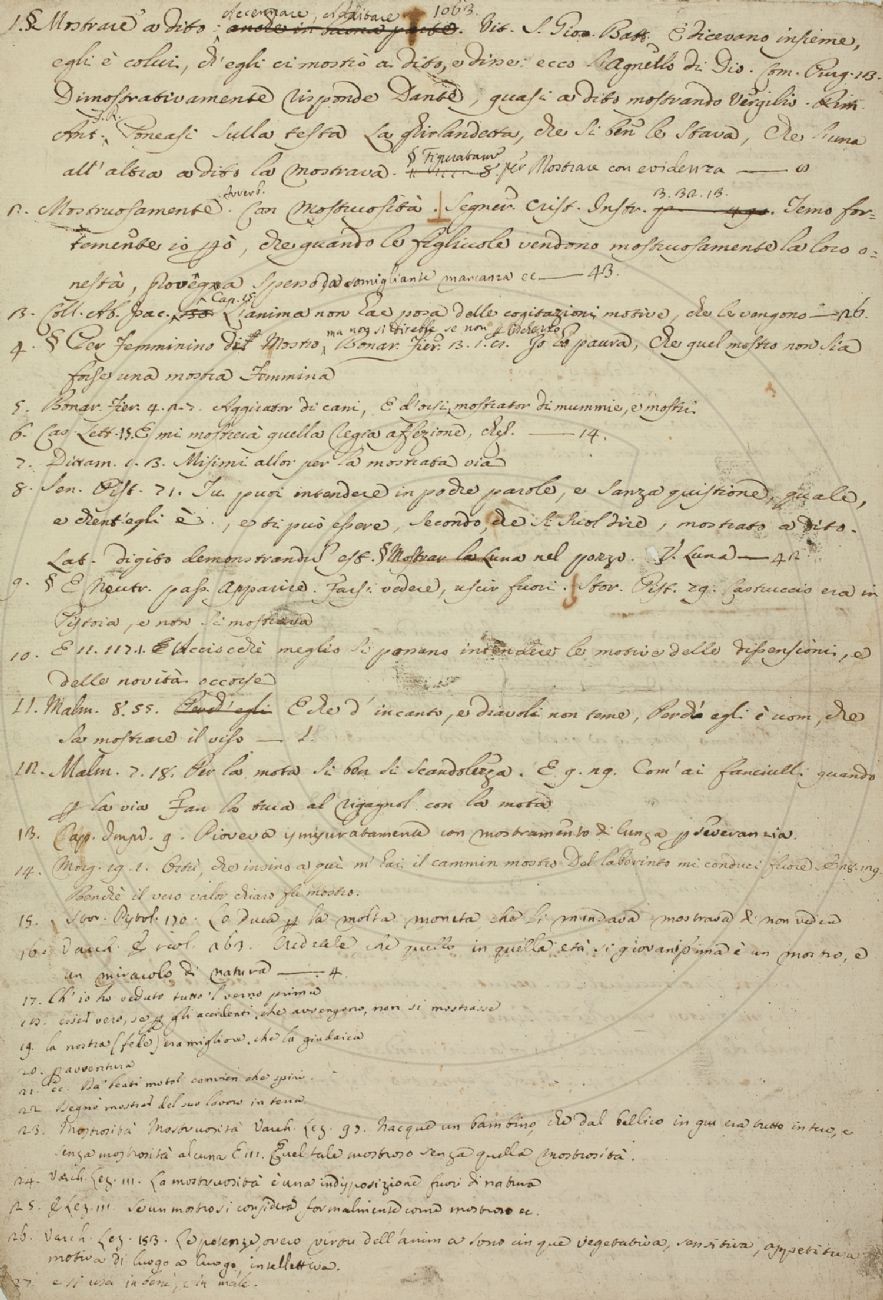 Accennare, Additare 1063.
1. § Mostrare a dito, anche in buona parte. Vit. S. Gio. Batt. E dicevano insieme,
egli è colui, ch'egli ci mostrò a dito, e disse: ecco l'Agnello di Dio. Com. Purg. 13.
Dimostrativamente risponde Dante, quasi a dito mostrando Vergilio. Rim.
Ant. Poneasi sulla testa La ghirlandetta, che sì ben le stava, Che l'una
all'altra a dito la mostrava. § Figuratam. per Mostrare con evidenza — 8
Averb.
2. Mostruosamente. Con mostruosità. Segner. Crist. Instr. 3. 32. 13. Temo for=
temente io però, che quando le figliuole vendono mostruosamente la loro o=
nestà, provenga spesso da somigliante mancanza ec — 43.
3. Coll. Ab. Isac. Cap. L'anima non hae posa delle cogitazioni motive, che le vengono — 26
4. § Per Femminino di Mostro, ma non si direbbe se non per ischerzo Bonar. Fier. 3. 1. Io ho paura, che quel mostro non sia
forse una mostra Femmina
5. Bonar. Fier. 4. 2. 7. Aggirator di cani, E d'orsi, mostrator di mummie, e mostri.
6. Car. Lett. E mi mostrerà quella stessa affezione, che — 14.
7. Dittam. 1. 3. Misimi allor per la mostrata via
8. Sen. Pist. 71. Tu puoi intendere in poche parole, e sanza quistione, quale,
e chent'egli è, e ti può essere, secondo che si suol dire, mostrato a dito.
Lat. digito demonstrandum est. § Mostrar la Luna nel pozzo. V. Luna — 42
9. § E Neutr. pass. Apparire. Farsi vedere, uscir fuori. Stor. Pist. 29. Castruccio era in
Pistoia, e non si mostrava
10. E 11. 117. 1. Acciocchè meglio si possano intendere le motive delle dissensioni, e
delle novità occorse
11. Malm. 8. 55. Perch'egli E che d'incanto, e diavoli non teme, Perch'egli è uom, che
sa mostrare il viso — 1.
12. Malm. 7. 18. Per la mota si ben si scandolezza. E 9. 29. Com'ai fanciulli quando
per la via Fan la tura al rigagnol con la mota
13. Capp. Impr. 9. Pioveva smisuratamente con mostramento di lunga perseveranzia.
14. Morg. 19. 1. che insino a quì m'hai il cammin mostro Dal laberinto mi conduci fuore
Benchè il vero valor chiaro fu mostro.
15. Stor. Pistol. 170. Lo Duca per la molta moneta che li mandava mostrava di non vedere
16. Varch. Ercol. 263. che quello in quella età sì giovanissima è un mostro, e
un miracolo di natura — 4.
17. Ch'io ho veduto tutto 'l verno prima
18. esser vero, se per gli accidenti, che avvengono, non si mostrasse
19. la nostra (fede) era migliore, che la giudaica
20. per avventura
21. ec. Da' beati motor convien che spiri.
22. Degno mostrar del suo lavoro in terra
23. Mostrosità Mostruosità Varch. Lez. 97. Nacque un bambino, che dal bellico in giù era tutto intero, e
senza mostrosità alcuna E 111. Quel tale mostroso senza quella mostrosità.
24. Varch. Lez. 111. La mostruosità è una indisposizione fuori di natura
25. E Lez. 111. Se un mostro si considera formalmente come mostroso ec.
26. Varch. Lez. 153. Le potenze, overo virtù dell'anima sono cinque vegetativa, sensitiva, appetitiva
motiva di luogo a luogo, intellettiva.
27. e si usa in bene, e in male.